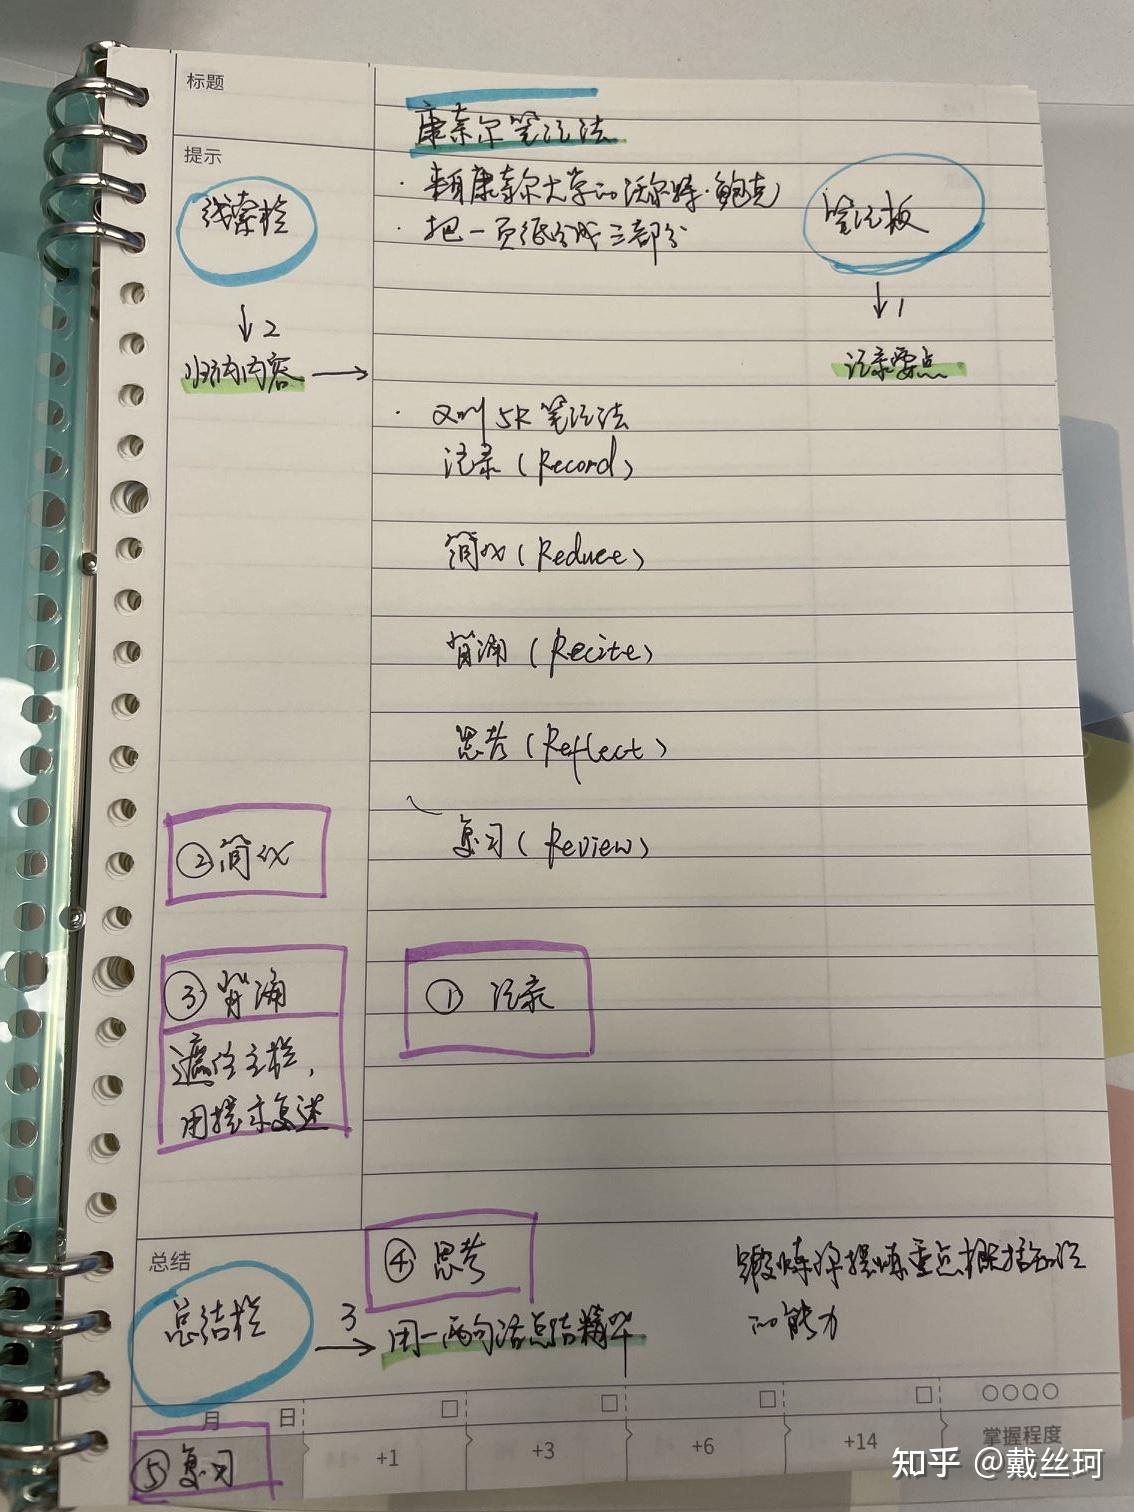 标题
康奈尔笔记法
提示
线索栏
· 来自康奈尔大学的沃尔特·鲍克
· 把一页纸分成三部分
笔记板
↓2
↓1
归纳内容 →
记录要点
· 又叫5R笔记法
记录(Record)
简化(Reduce)
背诵(Recite)
思考(Reflect)
复习(Review)
②简化
③背诵
遮住主栏,
用提示复述
①记录
总结
总结栏
3
→
④思考
用一两句话总结精华
锻炼你提炼重点概括
的能力
月 日
+1
+3
+6
+14
掌握程度
⑤复习
知乎 @戴丝珂